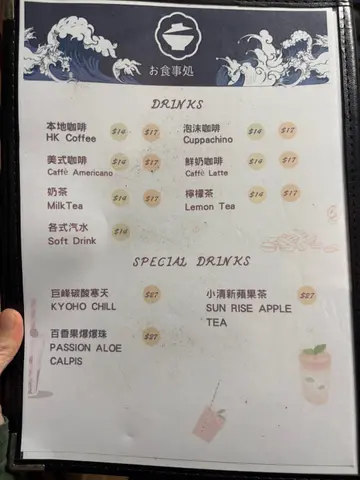 お食事処
DRINKS
本地咖啡 $14 $17
HK Coffee
泡沫咖啡 $14 $17
Cuppachino
美式咖啡 $14 $17
Caffè Americano
鮮奶咖啡 $14 $17
Caffè Latte
奶茶 $14 $17
MilkTea
檸檬茶 $14 $17
Lemon Tea
各式汽水 $14
Soft Drink
SPECIAL DRINKS
巨峰碳酸寒天 $27
KYOHO CHILL
小清新蘋果茶 $27
SUN RISE APPLE
TEA
百香果爆爆珠 $27
PASSION ALOE
CALPIS